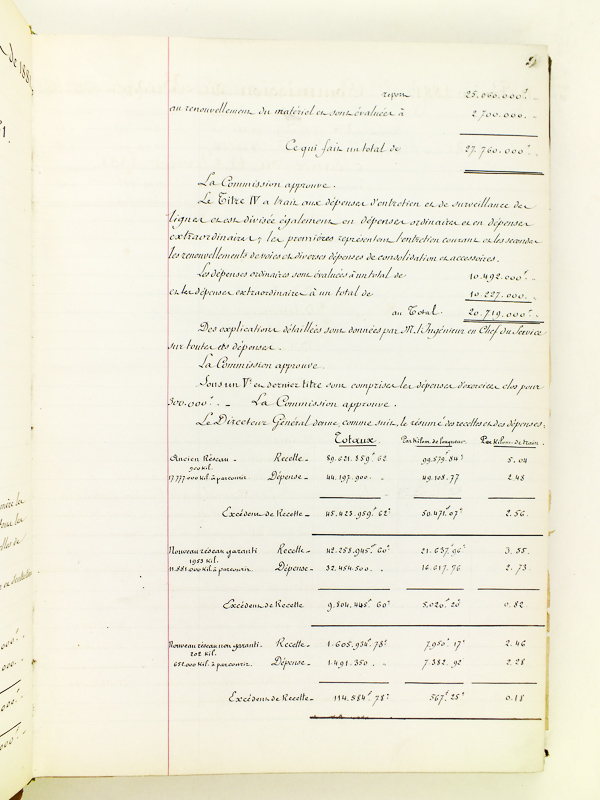 report 25.060.000f. "
au renouvellement du matériel et sont évaluées à 2.700.000. "
Ce qui fait un total de 27.760.000f. "
La Commission approuve.
Le Titre IV a trait aux dépenses d'entretien et de surveillance des
lignes et est divisée également en dépenses ordinaires et en dépenses
extraordinaires; les premières représentent l'entretien courant et les secondes
les renouvellements de voies et diverses dépenses de consolidation et accessoires.
Les dépenses ordinaires sont évaluées à un total de 10.492.000f. "
et les dépenses extraordinaires à un total de 10.227.000. "
au Total 20.719.000f. "
Des explications détaillées sont données par M. l'Ingénieur en Chef du Service
sur toutes ces dépenses.
La Commission approuve.
Sous un Ve et dernier titre sont comprises les dépenses d'exercices clos pour
300.000f. " — La Commission approuve.
Le Directeur Général donne, comme suit, le résumé des recettes et des dépenses:
Totaux. Par Kilom. de longueur. Par Kilom. de train.
Ancien Réseau - Recette - 89.621.859f. 62 99.579.84c 5.04
900 kil.
17.777.000 kil. à parcourir. Dépense - 44.197.900. " 49.108.77 2.48
Excédent de Recette - 45.423.959f. 62c 50.471f.07c 2.56.
Nouveau réseau garanti Recette - 42.258.945f. 60c 21.637f.96c 3.55.
1953 Kil.
11.881.000 Kil. à parcourir. Dépense - 32.454.500. " 16.617.76 2.73.
Excédent de Recette 9.804.445f. 60c 5.020f.20c 0.82
Nouveau réseau non garanti. Recette - 1.605.934f. 78c 7.950f. 17c 2.46
202 Kil.
652.000 Kil. à parcourir. Dépense - 1.491.350. " 7.382. 92 2.28
Excédent de Recette - 114.584f. 78c 567f. 25c 0.18